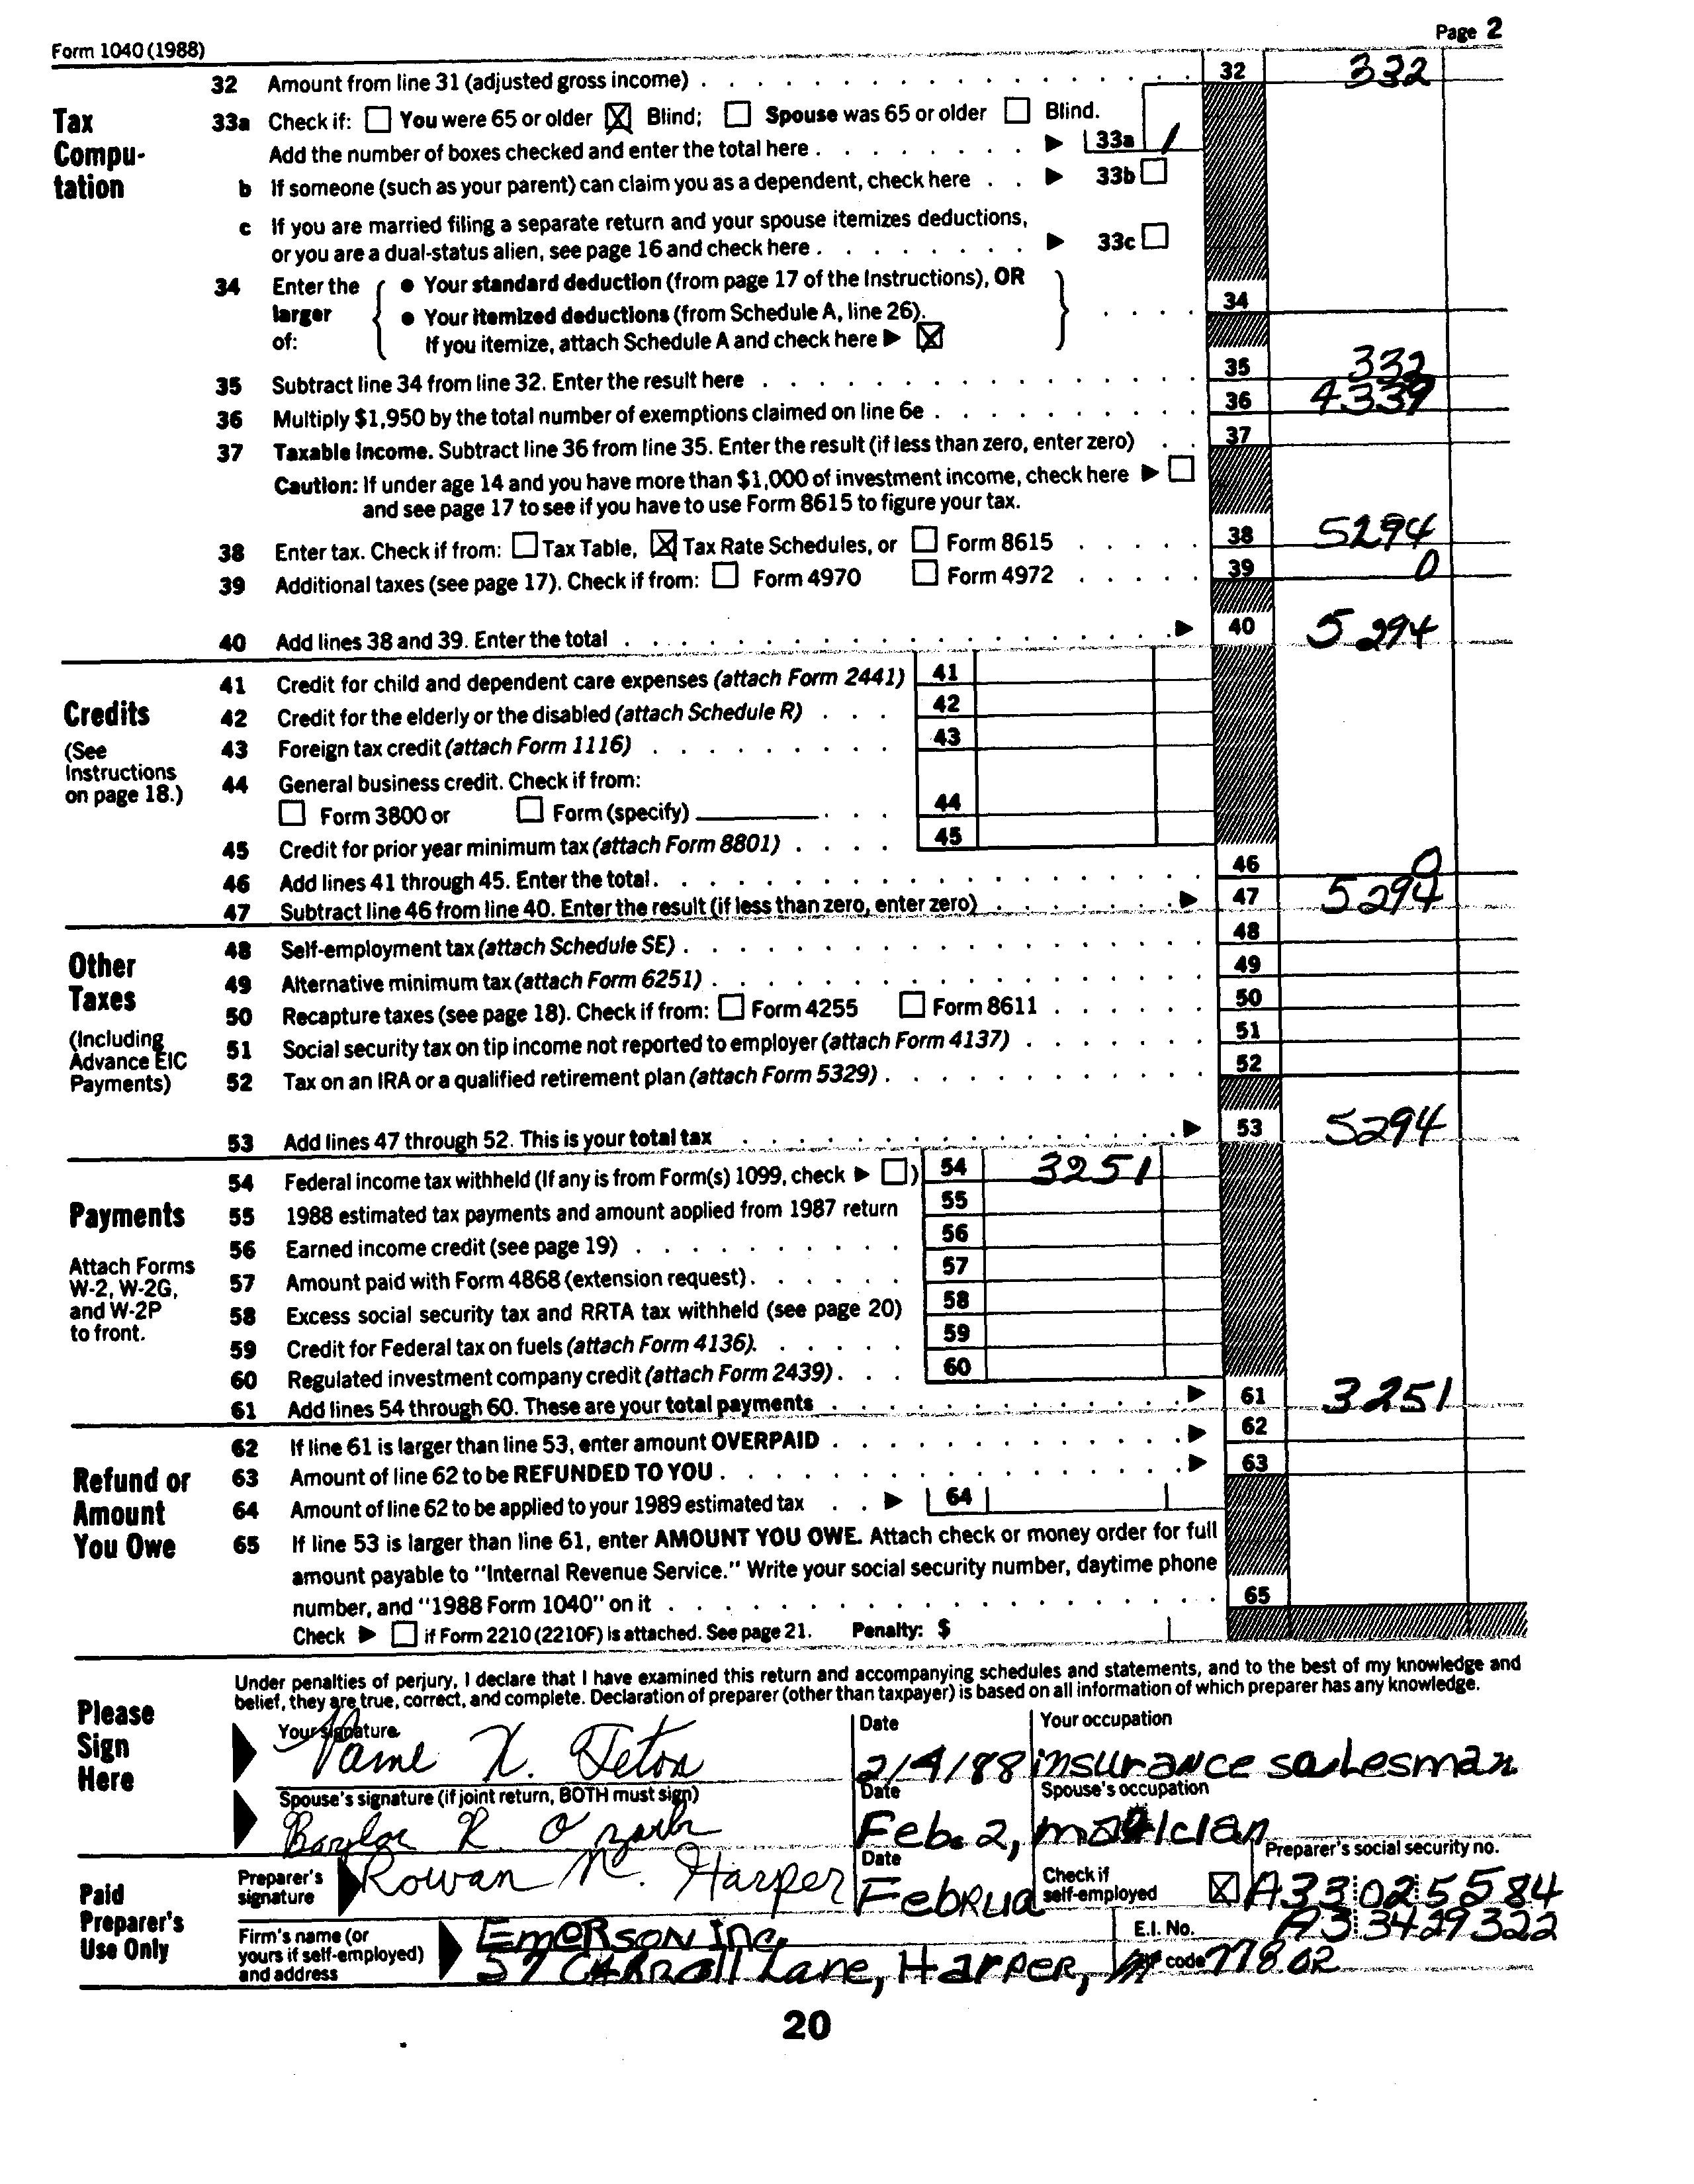 Form 1040 (1988) Page 2
Tax Compu-tation
32 Amount from line 31 (adjusted gross income) 32 332
33a Check if: You were 65 or older Blind; Spouse was 65 or older Blind.
Add the number of boxes checked and enter the total here 33a 1
b If someone (such as your parent) can claim you as a dependent, check here 33b
c If you are married filing a separate return and your spouse itemizes deductions,
or you are a dual-status alien, see page 16 and check here 33c
34 Enter the larger of:
• Your standard deduction (from page 17 of the Instructions), OR
• Your itemized deductions (from Schedule A, line 26).
If you itemize, attach Schedule A and check here
34
35 Subtract line 34 from line 32. Enter the result here 35 332
36 Multiply $1,950 by the total number of exemptions claimed on line 6e 36 4339
37 Taxable income. Subtract line 36 from line 35. Enter the result (if less than zero, enter zero) 37
Caution: If under age 14 and you have more than $1,000 of investment income, check here
and see page 17 to see if you have to use Form 8615 to figure your tax.
38 Enter tax. Check if from: Tax Table, Tax Rate Schedules, or Form 8615 38 5294
39 Additional taxes (see page 17). Check if from: Form 4970 Form 4972 39 0
40 Add lines 38 and 39. Enter the total 40 5294
Credits
(See Instructions on page 18.)
41 Credit for child and dependent care expenses (attach Form 2441) 41
42 Credit for the elderly or the disabled (attach Schedule R) 42
43 Foreign tax credit (attach Form 1116) 43
44 General business credit. Check if from:
Form 3800 or Form (specify) 44
45 Credit for prior year minimum tax (attach Form 8801) 45
46 Add lines 41 through 45. Enter the total 46 0
47 Subtract line 46 from line 40. Enter the result (if less than zero, enter zero) 47 5294
Other Taxes
(Including Advance EIC Payments)
48 Self-employment tax (attach Schedule SE) 48
49 Alternative minimum tax (attach Form 6251) 49
50 Recapture taxes (see page 18). Check if from: Form 4255 Form 8611 50
51 Social security tax on tip income not reported to employer (attach Form 4137) 51
52 Tax on an IRA or a qualified retirement plan (attach Form 5329) 52
53 Add lines 47 through 52. This is your total tax 53 5294
Payments
Attach Forms W-2, W-2G, and W-2P to front.
54 Federal income tax withheld (If any is from Form(s) 1099, check ) 54 3251
55 1988 estimated tax payments and amount applied from 1987 return 55
56 Earned income credit (see page 19) 56
57 Amount paid with Form 4868 (extension request) 57
58 Excess social security tax and RRTA tax withheld (see page 20) 58
59 Credit for Federal tax on fuels (attach Form 4136). 59
60 Regulated investment company credit (attach Form 2439) 60
61 Add lines 54 through 60. These are your total payments 61 3251
Refund or Amount You Owe
62 If line 61 is larger than line 53, enter amount OVERPAID 62
63 Amount of line 62 to be REFUNDED TO YOU 63
64 Amount of line 62 to be applied to your 1989 estimated tax 64
65 If line 53 is larger than line 61, enter AMOUNT YOU OWE. Attach check or money order for full
amount payable to "Internal Revenue Service." Write your social security number, daytime phone
number, and "1988 Form 1040" on it 65
Check if Form 2210 (2210F) is attached. See page 21. Penalty: $
Please Sign Here
Under penalties of perjury, I declare that I have examined this return and accompanying schedules and statements, and to the best of my knowledge and
belief, they are true, correct, and complete. Declaration of preparer (other than taxpayer) is based on all information of which preparer has any knowledge.
Your signature Date Your occupation
X. Teton 2/4/88 insurance salesman
Spouse's signature (if joint return, BOTH must sign) Date Spouse's occupation
R. Feb. 2,
Paid Preparer's Use Only
Preparer's signature Rowan N. Harper Date Februa Check if self-employed Preparer's social security no. A33025584
Firm's name (or yours if self-employed) and address Emerson Inc. E.I. No. A33429322
57 Carroll Lane, Harper, code 77802
20